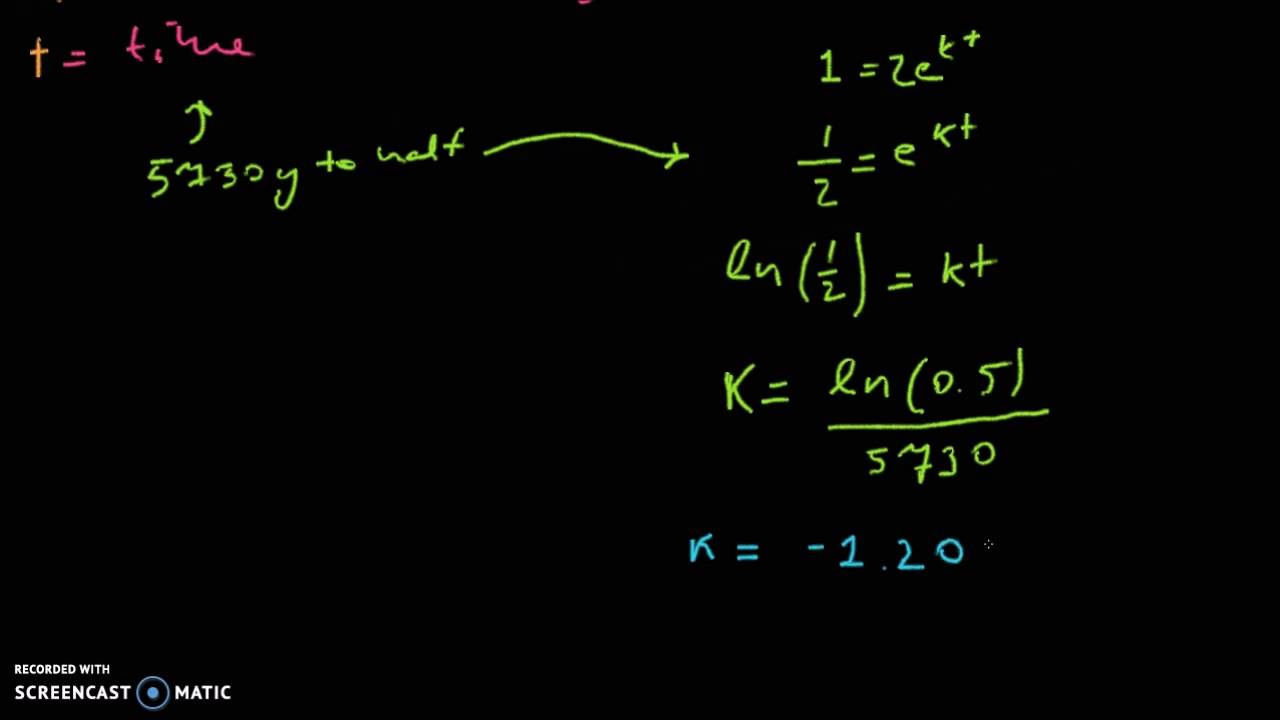 t = time
5730y to half
1 = 2e^{kt}
1/2 = e^{kt}
ln(1/2) = kt
K = ln(0.5)/5730
K = -1.20
RECORDED WITH
SCREENCAST MATIC